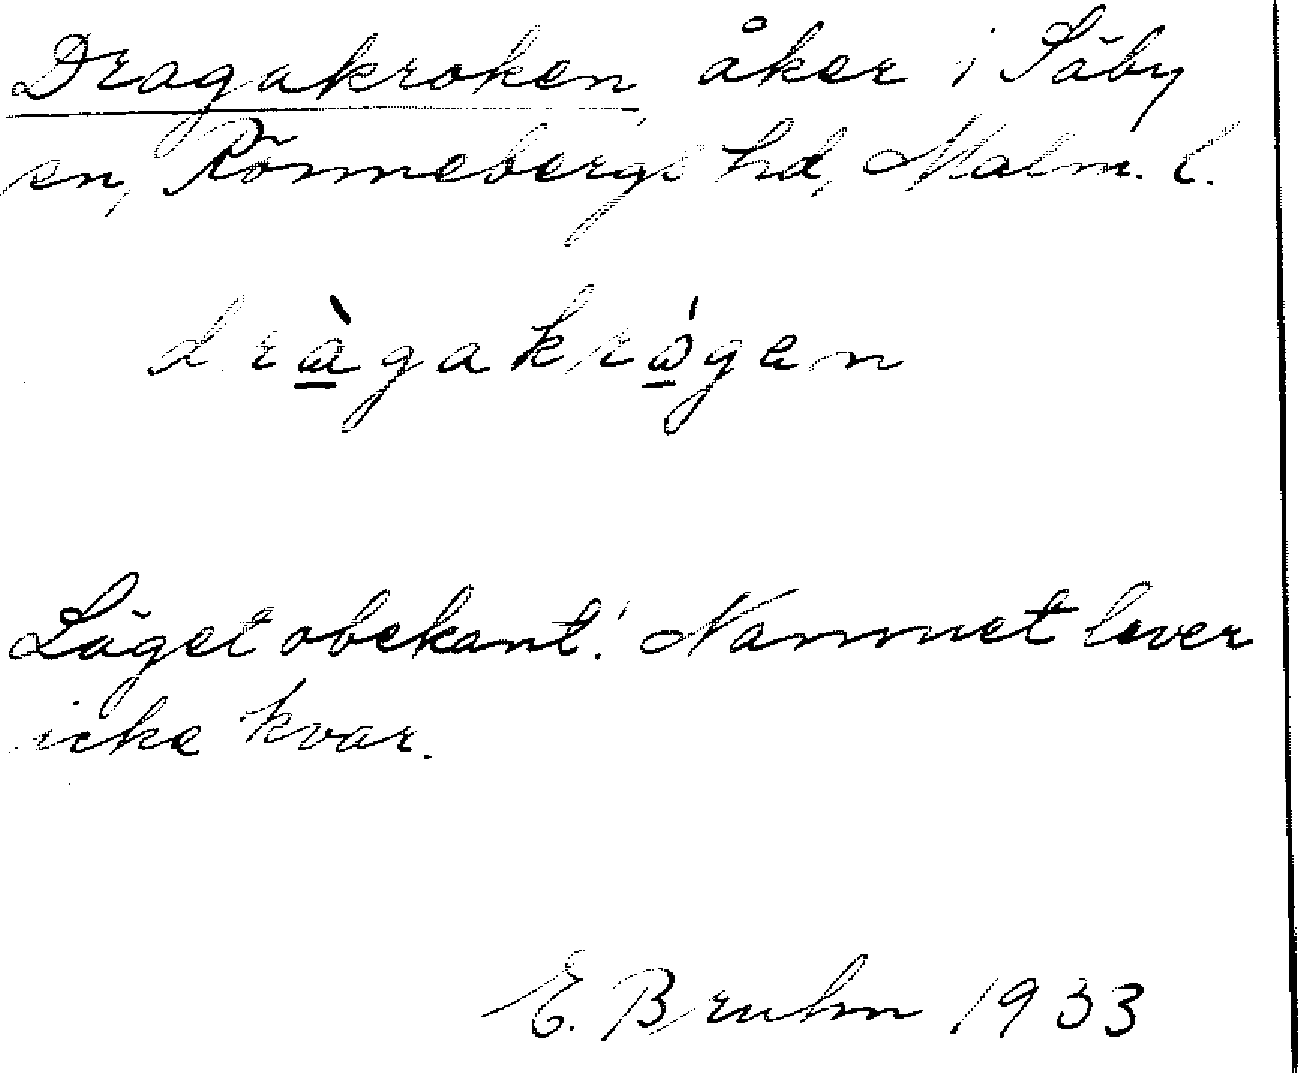 Dragakroken, åker i Säby
sn, Rönnebergs hd, Malm. l.
dràgakrógen
Läget obekant! Namnet lever
icke kvar.
E. Bruhn 1933